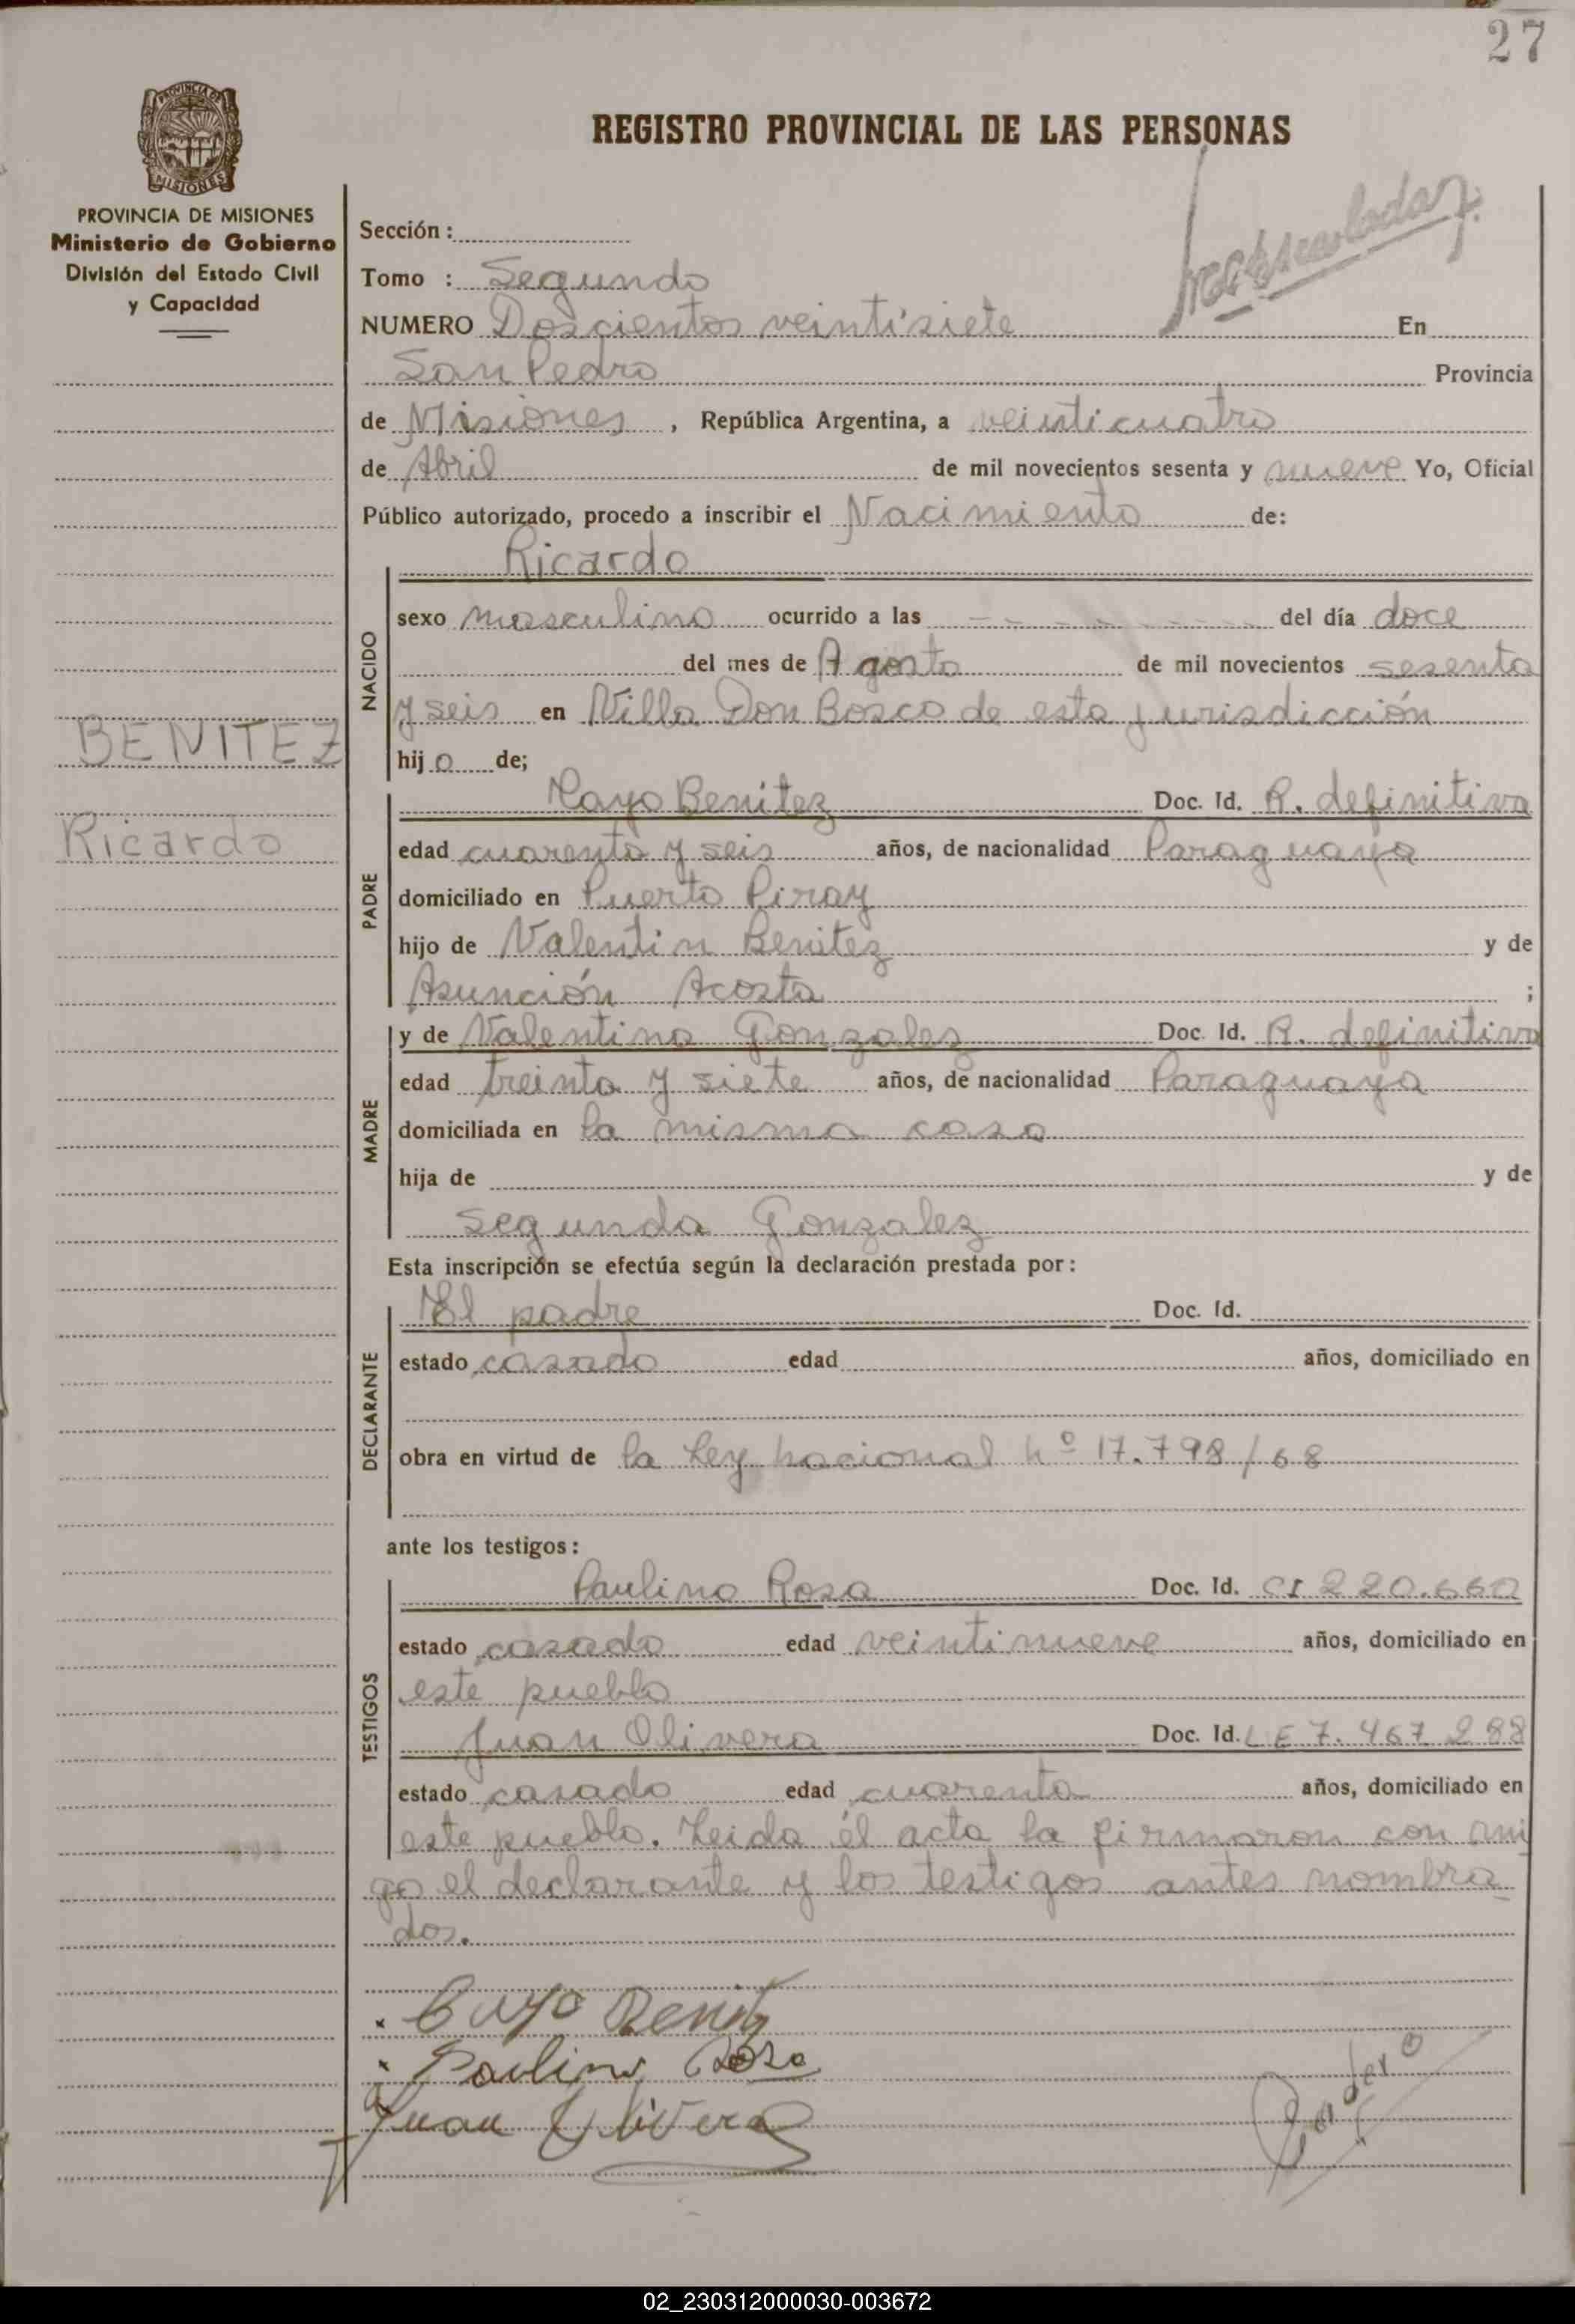 27
REGISTRO PROVINCIAL DE LAS PERSONAS
PROVINCIA DE MISIONES
MISIONES
PROVINCIA DE MISIONES
Ministerio de Gobierno
División del Estado Civil
y Capacidad
Sección :
Tomo : Segundo
NUMERO Doscientos veintisiete En
San Pedro Provincia
de Misiones, República Argentina, a veinticuatro
de Abril de mil novecientos sesenta y nueve Yo, Oficial
Público autorizado, procedo a inscribir el Nacimiento de:
Ricardo
NACIDO
sexo masculino ocurrido a las - - - - - - - - - del día doce
del mes de Agosto de mil novecientos sesenta
y seis en Villa Don Bosco de esta jurisdicción
hijo de;
BENITEZ
Ricardo
PADRE
Benitez Doc. Id. R. definitiva
edad cuarenta y seis años, de nacionalidad Paraguaya
domiciliado en Puerto Piray
hijo de Valentin Benitez y de
Asunción Acosta ;
MADRE
y de Valentina Gonzalez Doc. Id. R. definitiva
edad treinta y siete años, de nacionalidad Paraguaya
domiciliada en la misma casa
hija de y de
Segunda Gonzalez
Esta inscripción se efectúa según la declaración prestada por:
DECLARANTE
El padre Doc. Id.
estado casado edad años, domiciliado en
obra en virtud de la Ley nacional nº 17.798/68
ante los testigos:
TESTIGOS
Paulino Rosa Doc. Id. CI 220.660
estado casado edad veintinueve años, domiciliado en
este pueblo
Juan Olivera Doc. Id. LE 7.467.288
estado casado edad cuarenta años, domiciliado en
este pueblo. Leida el acta la firmaron con mi
go el declarante y los testigos antes nombra
dos.
Paulino Rosa
Juan Olivera
02_230312000030-003672